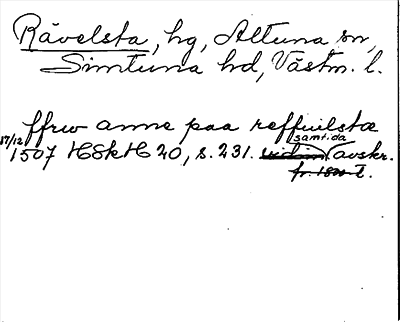 Rävelsta, hg, Altuna sn,
Simtuna hd, Västm. l.
ffrw anne paa reffuilstæ
17/12 1507 HSkH 20, s. 231. samtida avskr.